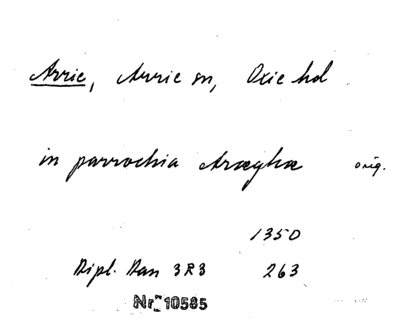 Arrie, Arrie sn, Oxie hd
in parrochia Aræghæ orig.
1350
Dipl. Dan 3R3 263
Nr 10585